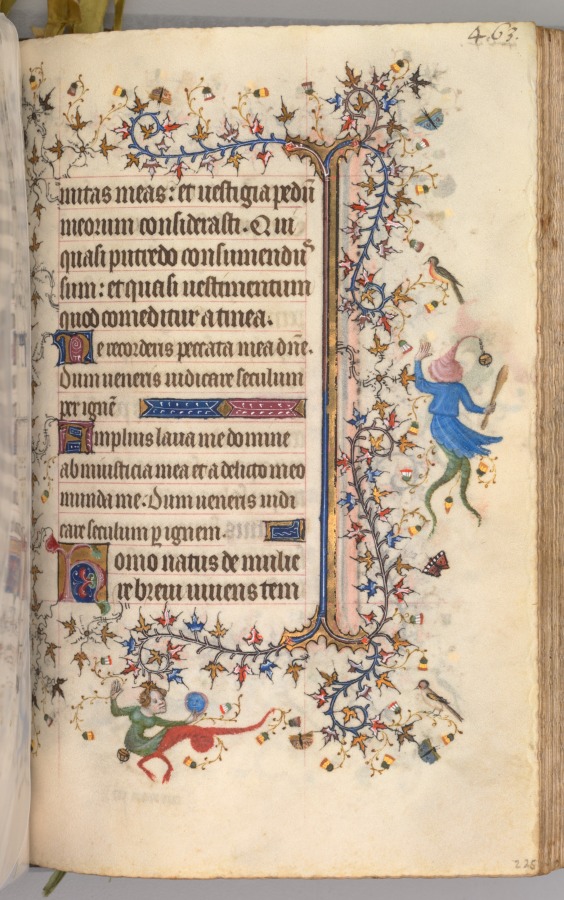 463.
uitas meas: et uestigia pedū
meorum considerasti. Qui
quasi putredo consumendus
sum: et quasi uestimentum
quod comeditur a tinea.
Ne recorderis peccata mea dñe.
Dum ueneris iudicare seculum
per ignē
Amplius laua me domine
ab iniusticia mea et a delicto meo
munda me. Dum ueneris iudi
care seculum p ignem.
Homo natus de mulie
re breui uiuens tem
225